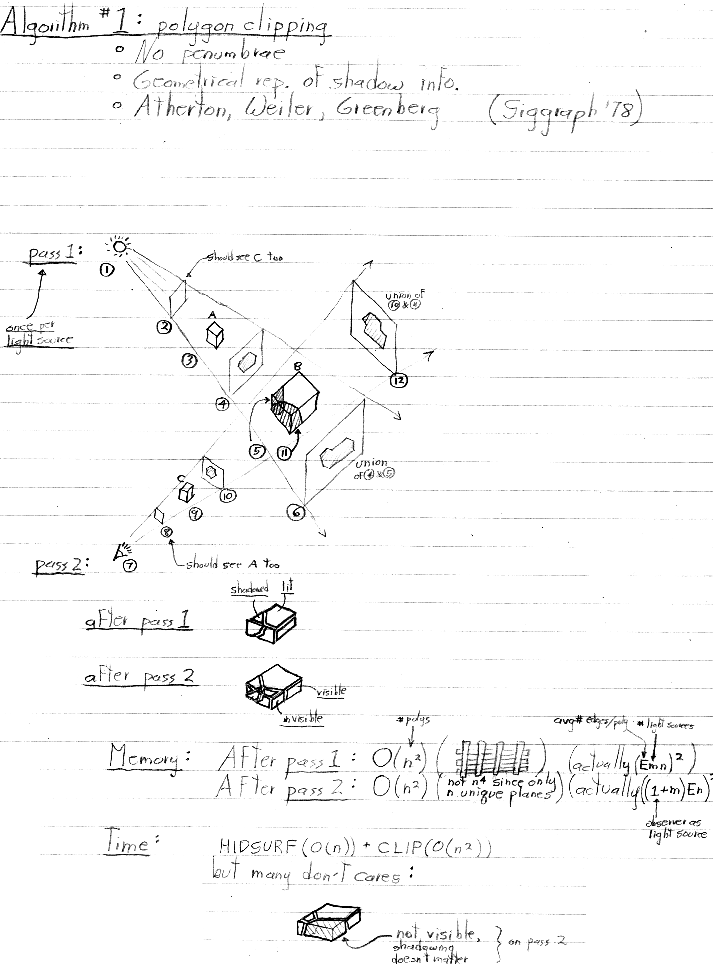 Algorithm #1: polygon clipping
° No penumbrae
° Geometrical rep. of shadow info.
° Atherton, Weiler, Greenberg (Siggraph '78)
pass 1:
① should see C too
once per
light source
②
A
③
④
union of
⑩ & ⑪
⑫
B
⑤ ⑪
union
of ④ & ⑤
⑥
C
⑩
⑨
⑧
⑦
pass 2:
should see A too
shadowed lit
after pass 1
after pass 2
visible
invisible
# polys
avg # edges/poly # light sources
Memory: After pass 1: O(n²) ( ) (actually (Emn)²)
After pass 2: O(n²) (not n⁴ since only
n unique planes) (actually ((1+m)En)²
observer as
light source
Time: HIDSURF(O(n)) + CLIP(O(n²))
but many don't cares:
not visible,
shadowing
doesn't matter
on pass 2